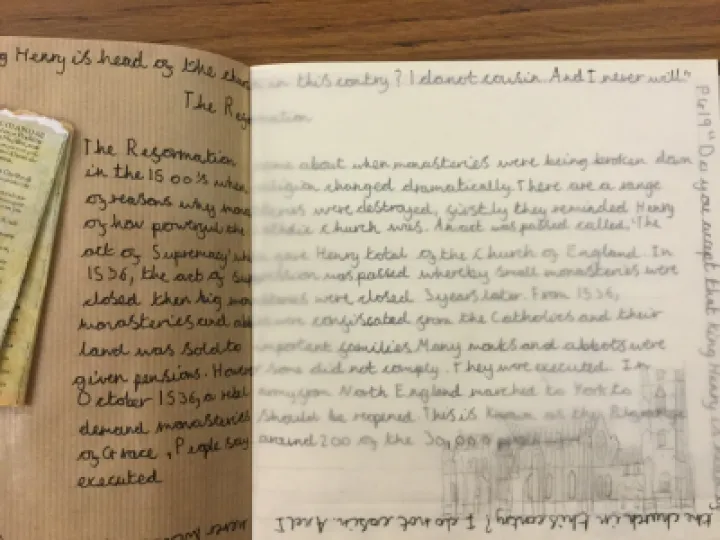 g Henry is head of the church in this contry? I do not cousin. And I never will."
The Reformation
The Reformation came about when monasteries were being broken down
in the 1500's when religion changed dramatically. There are a range
of reasons why monasteries were destroyed, firstly they reminded Henry
of how powerful the Catholic Church was. An act was passed called, 'The
act of Supremacy' wh gave Henry total of the Church of England. In
1536, the act of was passed whereby small monasteries were
closed then big monasteries were closed 3 years later. From 1536,
monasteries and abbeys were confiscated from the Catholics and their
land was sold to important families Many monks and abbots were
given pensions. However some did not comply. They were executed. In
October 1536, a rebel army from North England marched to York to
demand monasteries should be reopened. This is known as the Pilgrimage
of Grace, People say around 200 of the 30,000
executed
P619 "Do you accept that King Henry is
the church in this contry? I do not cosin. And I
never